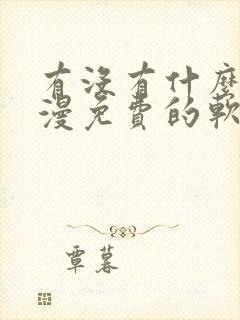 有没有什麼
漫免費的軟
覃暮